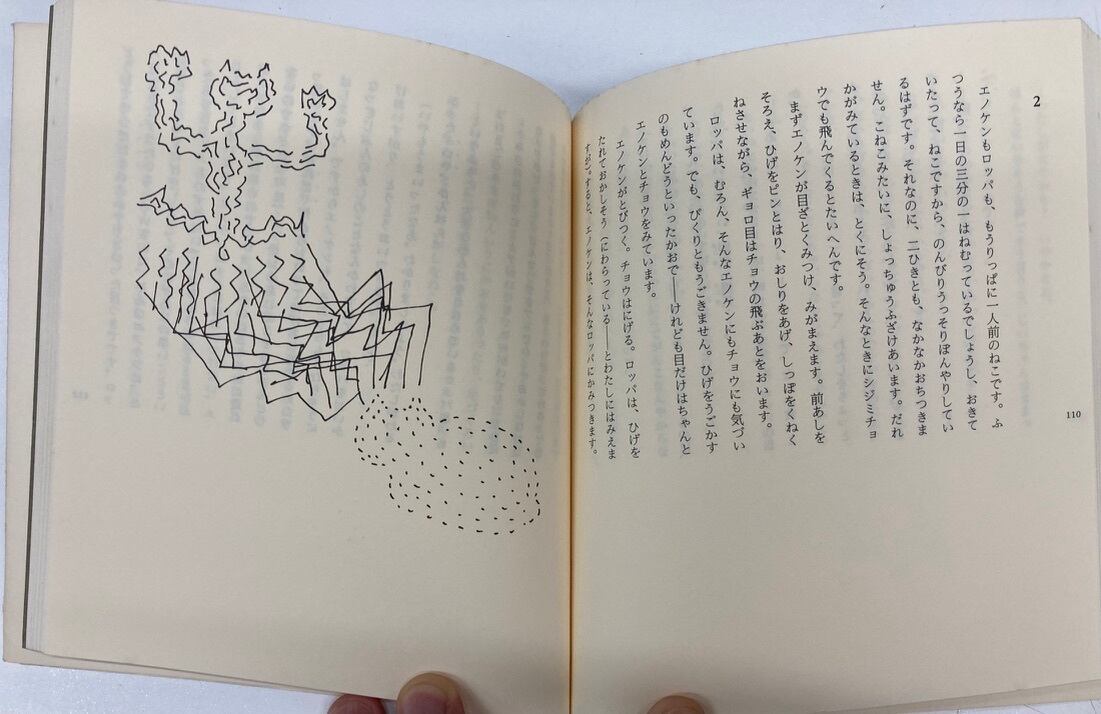 2
エノケンもロッパも、もうりっぱに一人前のねこです。ふ
つうなら一日の三分の一はねむっているでしょうし、おきて
いたって、ねこですから、のんびりうっそりぼんやりしてい
るはずです。それなのに、二ひきとも、なかなかおちつきま
せん。こねこみたいに、しょっちゅうふざけあいます。だれ
かがみているときは、とくにそう。そんなときにシジミチョ
ウでも飛んでくるとたいへんです。
まずエノケンが目ざとくみつけ、みがまえます。前あしを
そろえ、ひげをピンとはり、おしりをあげ、しっぽをくねく
ねさせながら、ギョロ目はチョウの飛ぶあとをおいます。
ロッパは、むろん、そんなエノケンにもチョウにも気づい
ています。でも、ぴくりともうごきません。ひげをうごかす
のもめんどうといったかおで――けれども目だけはちゃんと
エノケンとチョウをみています。
エノケンがとびつく。チョウはにげる。ロッパは、ひげを
たれておかしそう(にわらっている――とわたしにはみえま
すが)。すると、エノケンは、そんなロッパにかみつきます。
110